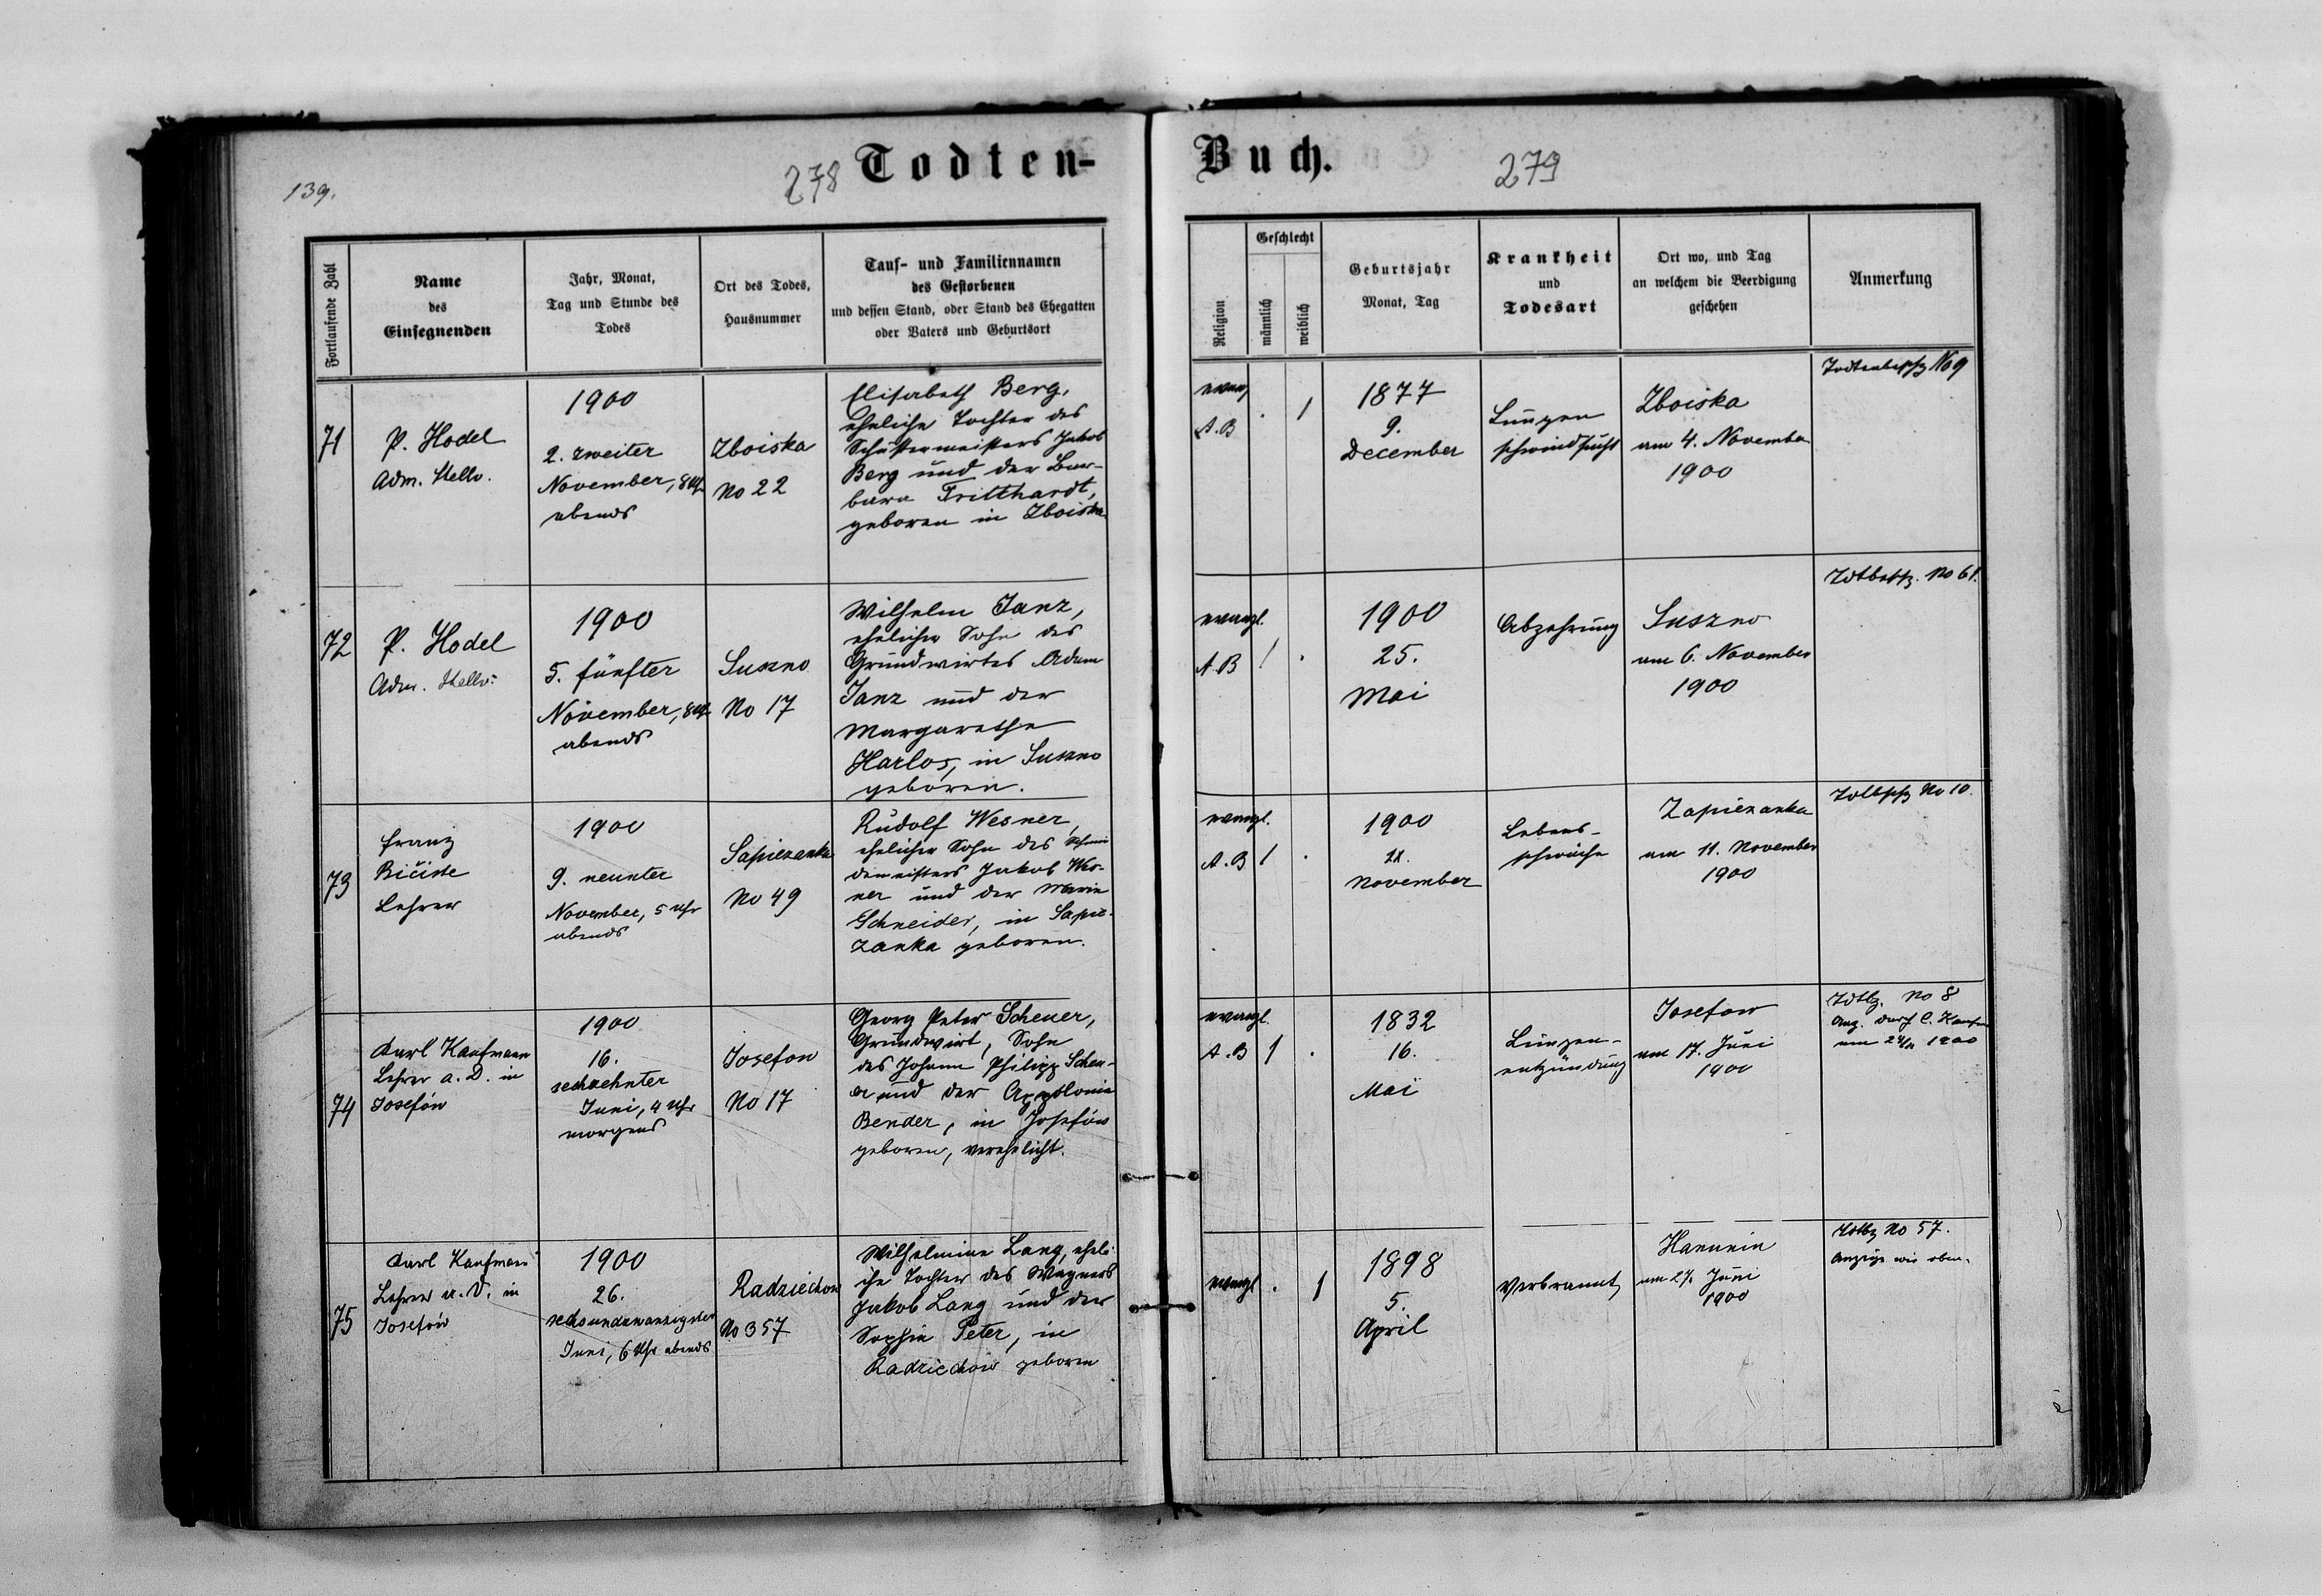 139.
278
Todten-
Buch.
279
Fortlaufende Zahl
Name
des
Einsegnenden
Jahr, Monat,
Tag und Stunde des
Todes
Ort des Todes,
Hausnummer
Tauf- und Familiennamen
des Gestorbenen
und dessen Stand, oder Stand des Ehegatten
oder Vaters und Geburtsort
Religion
Geschlecht
männlich
weiblich
Geburtsjahr
Monat, Tag
Krankheit
und
Todesart
Ort wo, und Tag
an welchem die Beerdigung
geschehen
Anmerkung
71
P. Hodel
Adm. Stellv.
1900
2. zweiter
November, 8 Uhr
abends
Zboiska
No 22
Elisabeth Berg,
eheliche Tochter des
Schustermeisters Jakob
Berg und der Bar-
bara Tritthardt,
geboren in Zboiska
evang
A.B
. 1
1877
9.
December
Lungen
schwindsucht
Zboiska
am 4. November
1900
No 9
72
P. Hodel
Adm. Stellv.
1900
5. fünfter
November, 8 Uhr
abends
Suszno
No 17
Wilhelm Janz,
ehelicher Sohn des
Grundwirtes Adam
Janz und der
Margarethe
Harlos, in Suszno
geboren.
evangl.
A.B
1 .
1900
25.
Mai
Abzehrung
Suszno
am 6. November
1900
No 61.
73
Franz
Lehrer
1900
9. neunter
November, 5 Uhr
abends
Sapiezanka
No 49
Rudolf Wesner,
ehelicher Sohn des Schmie
demeisters Jakob Wes-
ner und der Marie
Schneider, in Sapie-
zanka geboren.
evangl.
A.B
1 .
1900
November
Lebens-
schwäche
Zapiezanka
am 11. November
1900
No 10.
74
Karl Kaufmann
Lehrer a. D. in
Josefów
1900
16.
sechzehnter
Juni, 4 Uhr
morgens
Josefow
No 17
Georg Peter Scheuer,
Grundwirt, Sohn
des Johann Philipp Scheu-
er und der Appolonia
Bender, in Josefów
geboren, verehelicht.
evangl.
A.B
1 .
1832
16.
Mai
Lungen-
entzündung
Josefow
am 17. Juni
1900
No 8
Anz. durch C. Kaufm
1900
75
Karl Kaufmann
Lehrer a. D. in
Josefów
1900
26.
sechsundzwanzigster
Juni, 6 Uhr abends
Radziechow
No 357
Wilhelmine Lang, eheli-
che Tochter des Wagners
Jakob Lang und der
Sophie Peter, in
Radziechów geboren
evangl
. 1
1898
5.
April
Verbrannt
Hanunin
am 27. Juni
1900
No 57.
Anzeige wie oben.